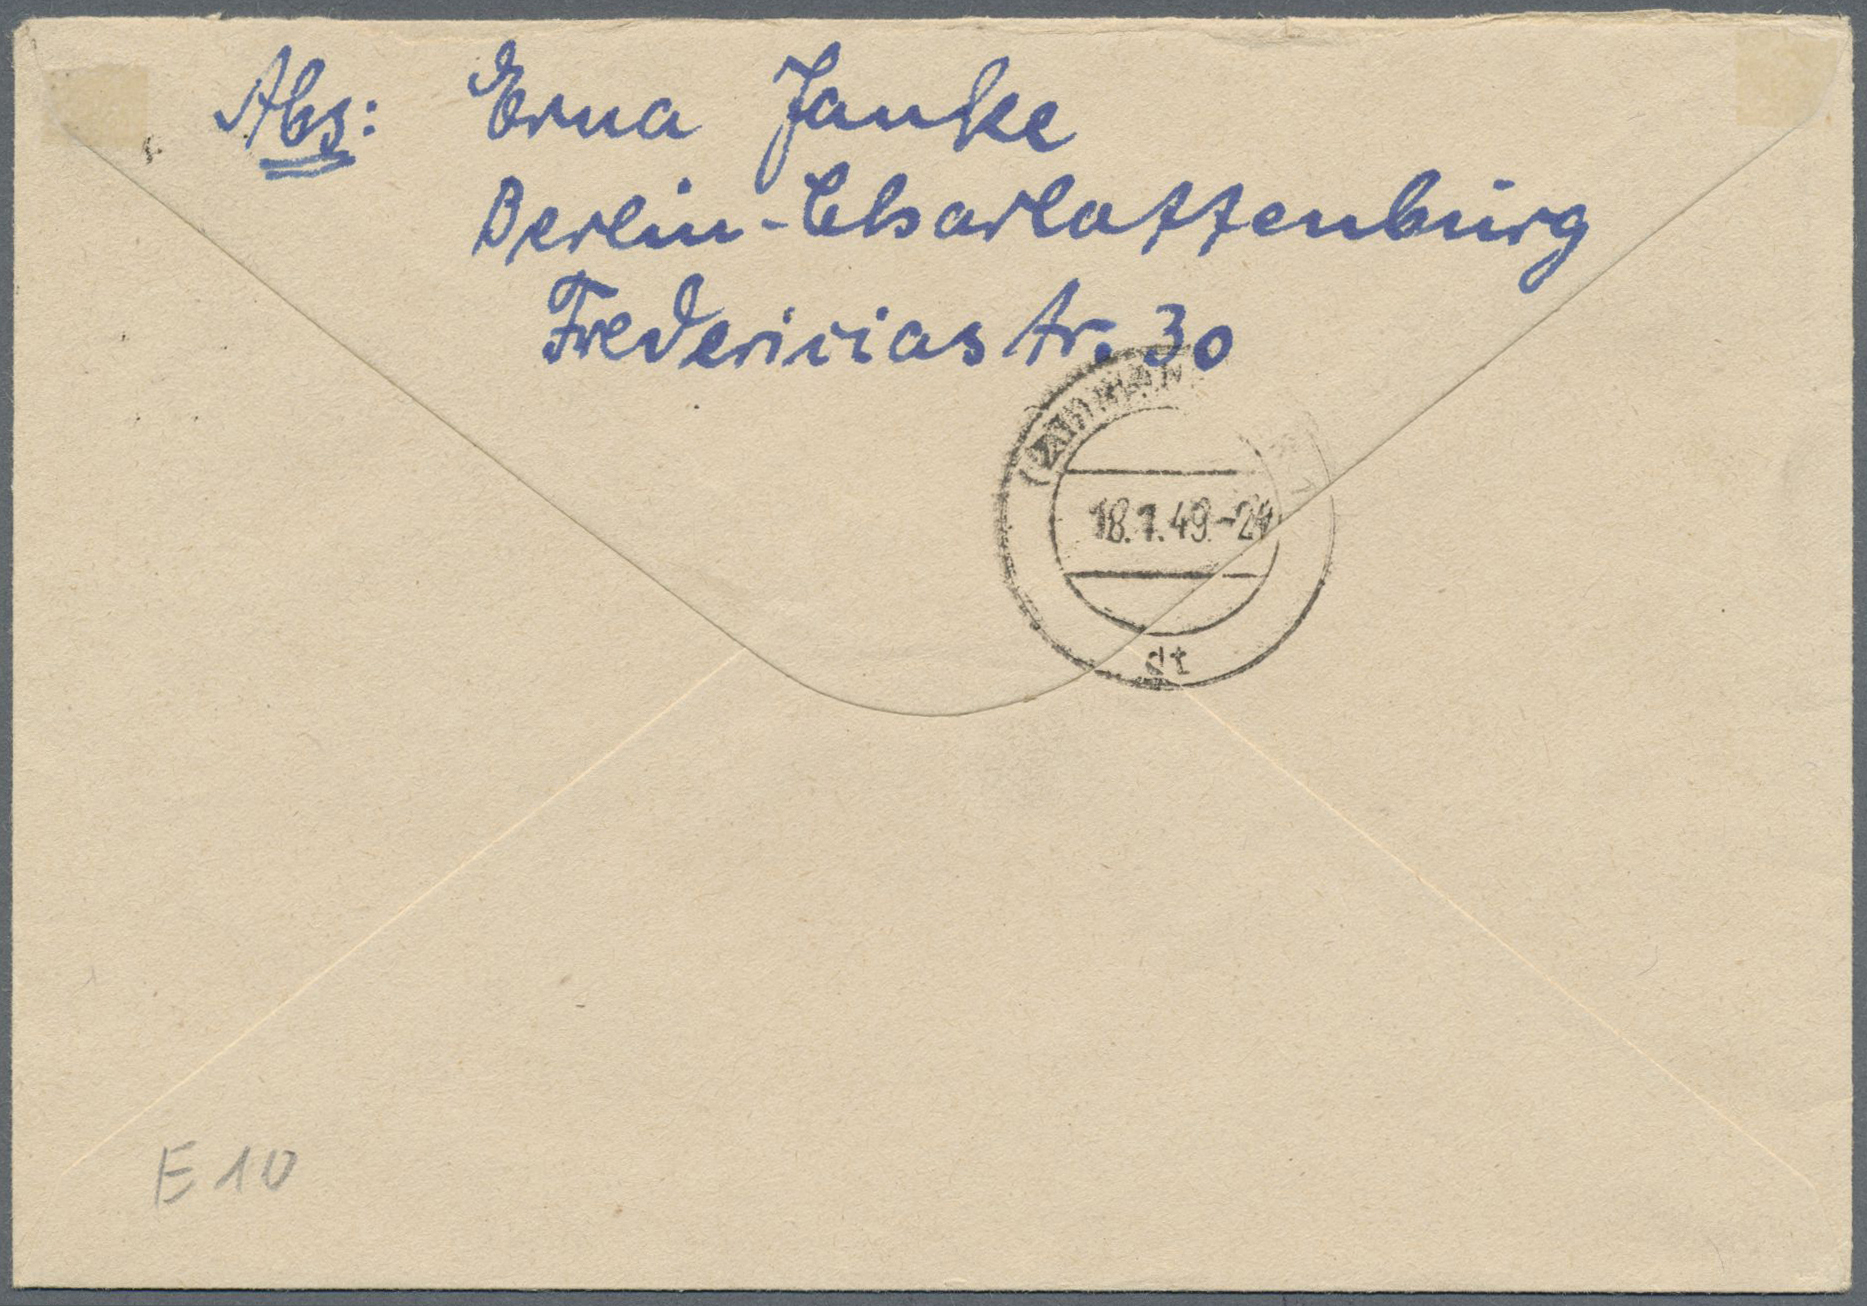 Abs: Erna Janke
Berlin-Charlottenburg
Fredericiastr. 30
18.1.49.-21
dt
E 10